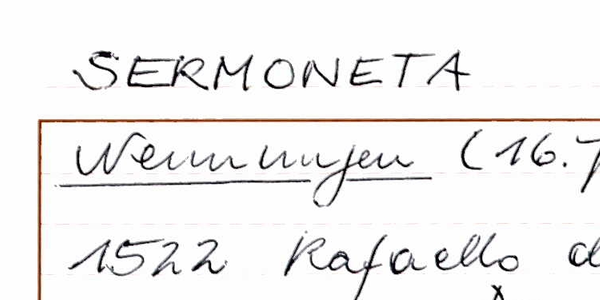 SERMONETA
Nennungen (16.
1522 Rafaello d